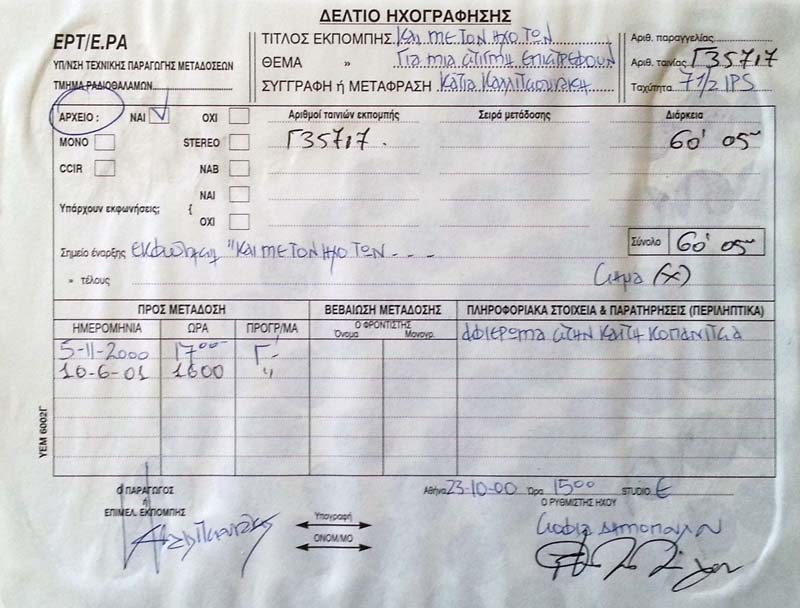 ΔΕΛΤΙΟ ΗΧΟΓΡΑΦΗΣΗΣ
ΕΡΤ/Ε.ΡΑ
ΥΠ/ΝΣΗ ΤΕΧΝΙΚΗΣ ΠΑΡΑΓΩΓΗΣ ΜΕΤΑΔΟΣΕΩΝ
ΤΜΗΜΑ ΡΑΔΙΟΘΑΛΑΜΩΝ
ΤΙΤΛΟΣ ΕΚΠΟΜΠΗΣ ΚΑΙ ΜΕ ΤΟΝ ΗΧΟ ΤΩΝ
ΘΕΜΑ » Για μια στιγμή επιστρέφουν
ΣΥΓΓΡΑΦΗ ή ΜΕΤΑΦΡΑΣΗ Κάτια Καλλιτσουνάκη
Αριθ. παραγγελίας
Αριθ. ταινίας Γ35717
Ταχύτητα 7 1/2 IPS
ΑΡΧΕΙΟ : ΝΑΙ ΟΧΙ Αριθμοί ταινιών εκπομπής Σειρά μετάδοσης Διάρκεια
ΜΟΝΟ STEREO Γ35717. 60' 05"
CCIR NAB
Υπάρχουν εκφωνήσεις; { ΝΑΙ
ΟΧΙ
Σύνολο 60' 05"
Σημείο έναρξης εκφώνηση "ΚΑΙ ΜΕ ΤΟΝ ΗΧΟ ΤΩΝ - - -
» τέλους σήμα (Χ)
ΠΡΟΣ ΜΕΤΑΔΟΣΗ ΒΕΒΑΙΩΣΗ ΜΕΤΑΔΟΣΗΣ ΠΛΗΡΟΦΟΡΙΑΚΑ ΣΤΟΙΧΕΙΑ & ΠΑΡΑΤΗΡΗΣΕΙΣ (ΠΕΡΙΛΗΠΤΙΚΑ)
ΗΜΕΡΟΜΗΝΙΑ ΩΡΑ ΠΡΟΓΡ/ΜΑ Ο ΦΡΟΝΤΙΣΤΗΣ
Όνομα Μονογρ.
αφιέρωμα στην Καίτη Κοπανίτσα
5-11-2000 17 00 Γ-
10-6-01 1600 "
ΥΕΜ 6002Γ
Ο ΠΑΡΑΓΩΓΟΣ
ή
ΕΠΙΜΕΛ. ΕΚΠΟΜΠΗΣ
Υπογραφή
ΟΝΟΜ/ΜΟ
Αθήνα 23-10-00 Ώρα 15 00 STUDIO Ε
Ο ΡΥΘΜΙΣΤΗΣ ΗΧΟΥ
Σοφία Δημοπούλου